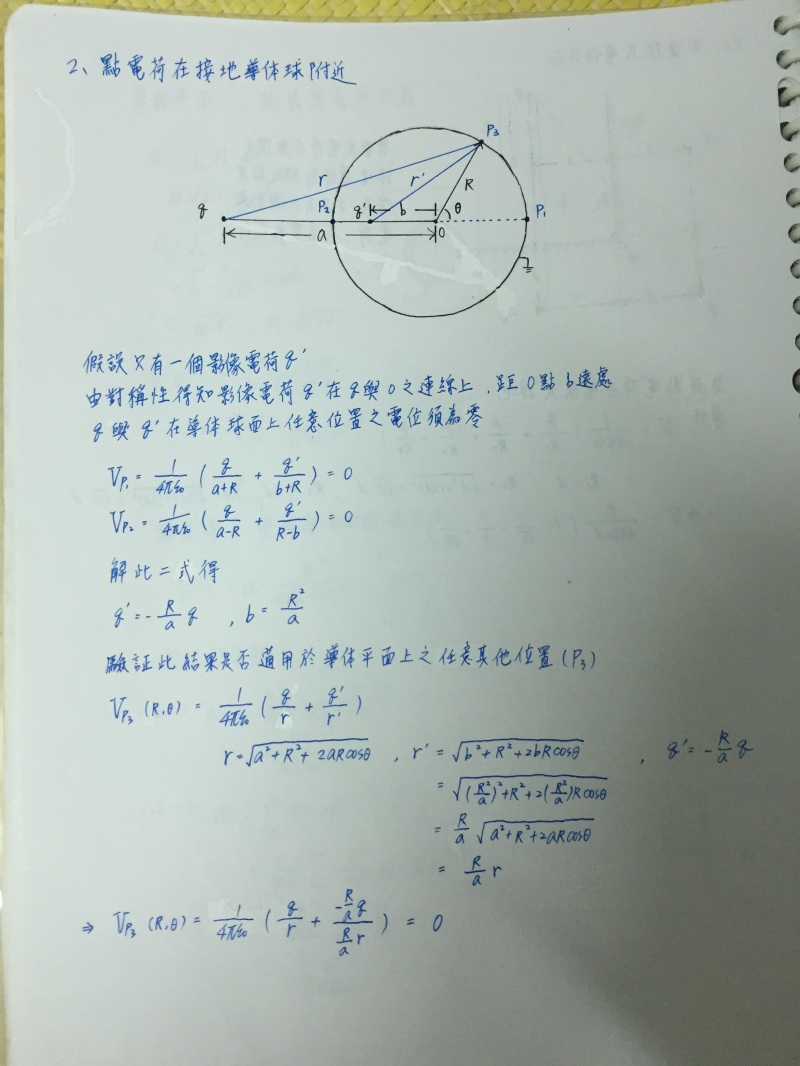 2、點電荷在接地導体球附近
P₃
r
r'
R
q
P₂
q'
b
θ
P₁
a
O
假設只有一個影像電荷q'
由對稱性得知影像電荷q'在q與O之連線上，距O點b遠處
q與q'在導体球面上任意位置之電位須為零
V_{P₁} = \frac{1}{4πε₀} ( \frac{q}{a+R} + \frac{q'}{b+R} ) = 0
V_{P₂} = \frac{1}{4πε₀} ( \frac{q}{a-R} + \frac{q'}{R-b} ) = 0
解此二式得
q' = - \frac{R}{a} q , b = \frac{R²}{a}
驗証此結果是否適用於導体平面上之任意其他位置(P₃)
V_{P₃} (R,θ) = \frac{1}{4πε₀} ( \frac{q}{r} + \frac{q'}{r'} )
r = \sqrt{a²+R²+2aRcosθ} , r' = \sqrt{b²+R²+2bRcosθ} , q' = - \frac{R}{a} q
= \sqrt{(\frac{R²}{a})²+R²+2(\frac{R²}{a})Rcosθ}
= \frac{R}{a} \sqrt{a²+R²+2aRcosθ}
= \frac{R}{a} r
⇒ V_{P₃} (R,θ) = \frac{1}{4πε₀} ( \frac{q}{r} + \frac{-\frac{R}{a}q}{\frac{R}{a}r} ) = 0